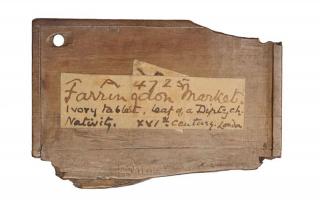 A 4725
Farringdon Market.
Ivory tablet, leaf of a Diptych.
Nativity. XVIth Century. London